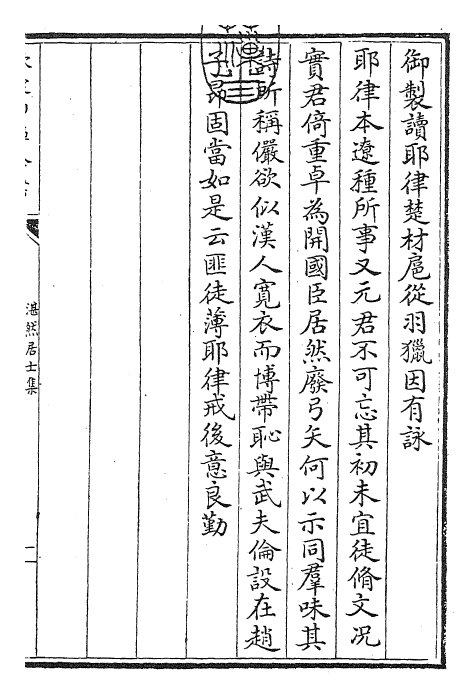 御製讀耶律楚材扈從羽獵因有詠
耶律本遼種所事又元君不可忘其初未宜徒脩文况
實君倚重卓為開國臣居然廢弓矢何以示同羣味其
詩所稱儼欲似漢人寛衣而博帶恥與武夫倫設在趙
子昂固當如是云匪徒薄耶律戒後意良勤
湛然居士集
一